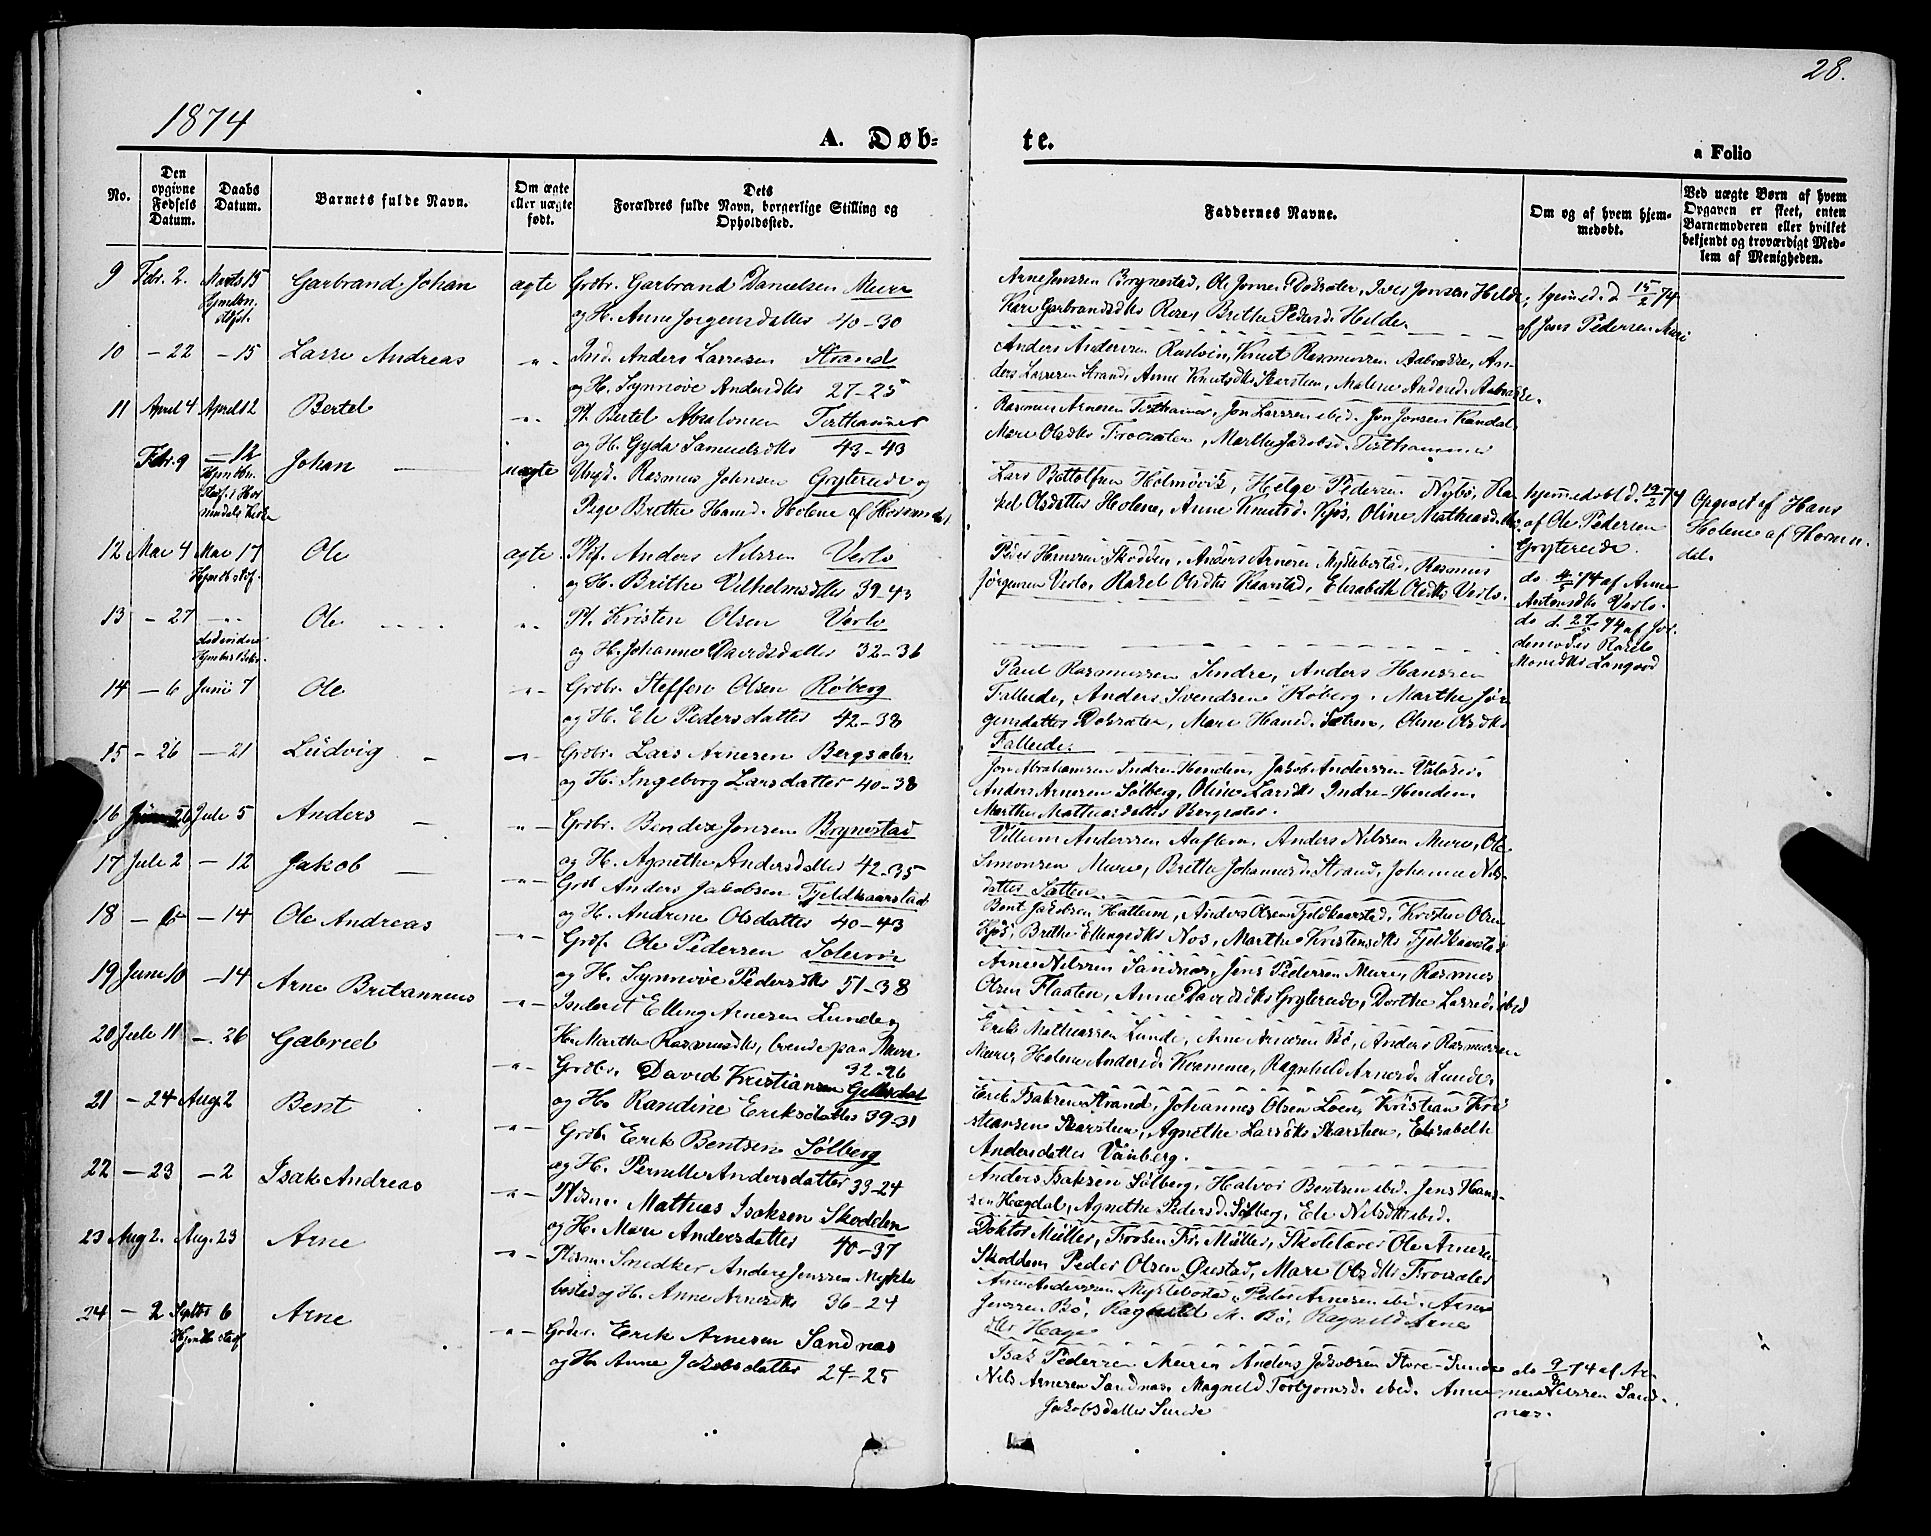 28.
1874
A. Døb-
te.
a Folio
No.
Den opgivne Fødsels Datum.
Daabs Datum.
Barnets fulde Navn.
Om ægte eller uægte født.
Dets Forældres fulde Navn, borgerlige Stilling og Opholdssted.
Faddernes Navne.
Om og af hvem hjemmedøbt.
Ved uægte Børn af hvem Opgaven er skeet, enten Barnemoderen eller hvilket bekjendt og troværdigt Medlem af Menigheden.
9 Febr. 2. Marts 15 Garbrand Johan ægte Grdbr. Garbrand Danielsen Muri
og H. Anne Jørgensdatter 40-30
Arne Jenssen Brynestad, Ole Jonsen Dosæter, Iver Jensen Hilde,
Kari Garbrandsdtr Roset, Brithe Pedersd. Hilde.
hjemmed. d 15/2 74
af Jens Pedersen Muri
10 - 22 - 15 Lasse Andreas -"- Ind. Anders Lassesen Strand
og H. Synnøve Andersdtr 27-25
Anders Anderssen Rustøen, Knut Rasmussen Aabrække, An-
ders Lassesen Strand, Anne Knutsdtr Skarsteen, Malene Andersd. Aabrække.
11 April 4 April 12 Bertel -"- Pl. Bertel Absalonsen Tisthammer
og H. Gyda Samuelsdtr 43-43
Rasmus Arnesen Tisthammer, Jon Larssen ibid. Jon Jonsen Kandal
Mari Olsdtr Frøsæter, Marthe Jakobsd. Tisthammer
Febr. 9 - 12 Johan uægte Ungk. Rasmus Johnsen Grytereide og
Pige Brithe Hansd. Holene af Hornindal
Lars Bottolfsen Holmøvik, Helge Pedersen Nybø, Ra-
kel Olsdatter Holene, Anne Knutsd. Kjøs, Oline Mathiasdtr
hjemmedøbt d. 12/2 74
af Ole Pedersen
Grytereide.
Opgivet af Hans
Holene af Hornin-
dal.
12 Mai 4 Mai 17 Ole ægte Pl. Anders Nilssen Verlo
og H. Brithe Vilhelmsdtr 39-43
Peder Hanssen Skodden, Anders Arnesen Myklebostad, Rasmus
Jørgensen Verlo, Rakel Olsdtr Kaarstad, Elisabeth Olsdtr Verlo.
do 4/5 74 af Anne
Antonsdtr Verlo.
13 - 27 -"- Ole -"- Pl. Kristen Olsen Verlo
og H. Johanne Davidsdatter 32-36
do d. 27/5 74 af Jor-
demoder Rasele
Monsdtr Langvod
14 - 6 Juni 7 Ole -"- Grdbr. Steffen Olsen Røberg
og H. Eli Pedersdatter 42-38
Paul Rasmussen Indre, Anders Hanssen
Falleide, Anders Svendsen Røberg, Marthe Jør-
gensdatter Dosæter, Mari Hansd. Sætren, Oline Olsdtr
Falleide.
15 - 26 - 21 Ludvig -"- Grdbr. Lars Arnesen Bergsæter
og H. Ingeborg Larsdatter 40-38
Jon Abrahamsen Indre-Henden, Jakob Anderssen Valaker,
Anders Arnesen Sølberg, Oline Larsdtr Indre-Henden,
Marthe Mathiasdatter Bergsæter
16 Juni 26 Juli 5 Anders -"- Grdbr. Bendix Jensen Brynestad
og H. Agnethe Andersdatter 42-35
Villum Anderssen Aaflem, Anders Nilssen Muri, Ole
Simonsen Muri, Brithe Johannesd. Strand, Johanne Nils-
datter Sætren
17 Juli 2 - 12 Jakob -"- Grdb Anders Jakobsen Fjeldkaarstad
og H. Andrine Olsdatter 40-43
Bent Jakobsen Hatlem, Anders Olsen Fjeldkaarstad, Kristen Olsen
Kjøs, Brithe Ellingsdtr Nos, Marthe Kristensdtr Fjeldkaarstad
18 - 14 Ole Andreas -"- Grdf. Ole Pedersen Solem
og H. Synnøve Pedersdtr 51-38
Arne Nilssen Sandnæs, Jens Pedersen Muri, Rasmus
Olsen Flaaten, Anne Davidsdtr Gryterede, Dorthe Lassesd. ibid
19 Juni 10 - 14 Arne Britannius -"- Inderst Elling Arnesen Lunde og
H. Marthe Rasmusdtr, boende paa Muri
32-26
Erik Mathiassen Lunde, Arne Arnesen Bø, Anders Rasmussen
Muri, Helene Andersd. Kvamme, Ragnhild Arnesd. Lunde.
20 Juli 11 - 26 Gabriel -"- Grdbr. David Kristiansen Gillesdal
og H. Randine Eriksdatter 39-31
Erik Isaksen Strand, Johannes Olsen Loen, Kristian Kri-
stiansen Skarsteen, Agnethe Larsdtr Skarsteen, Elisabeth
Andersdatter Vanberg.
21 - 24 Aug. 2 Bent -"- Grdbr. Erik Bentsen Sølberg
og H. Pernille Andersdatter 33-24
Anders Isaksen Sølberg, Halvor Bentsen ibid. Jens Hans-
sen Hægdal, Agnethe Pedersd. Sølberg, Eli Nilsdtr ibid.
22 - 23 - 2 Isak Andreas -"- Mathias Isaksen Skodden
og H. Mari Andersdatter 40-37
Doktor Müller, Frøken Fr. Müller, Skolelærer Ole Arnesen
Skodden, Peder Olsen Øvstad, Mari Olsdtr Frøsæter
23 Aug 2. Aug. 23 Arne -"- Snedker Anders Jenssen Mykle-
bostad og H. Anne Arnesdtr 36-24
Arne Anderssen Myklebostad, Peder Arnesen ibid. Arne
Jenssen Bø, Ragnhild A. Bø, Ragnhild Arnes-
dtr Hage
24 - 2 Septbr 6 Arne -"- Grdbr. Erik Arnesen Sandnæs
og H. Anne Jakobsdatter 24-25
Isak Pedersen Muri, Anders Jakobsen Store-Sunde
Nils Arnesen Sandnæs, Magnild Torbjørnsd. ibid. Anne
Jakobsdatter Sunde
do 9/8 74 af Ar-
ne Nilssen Sand-
næs.